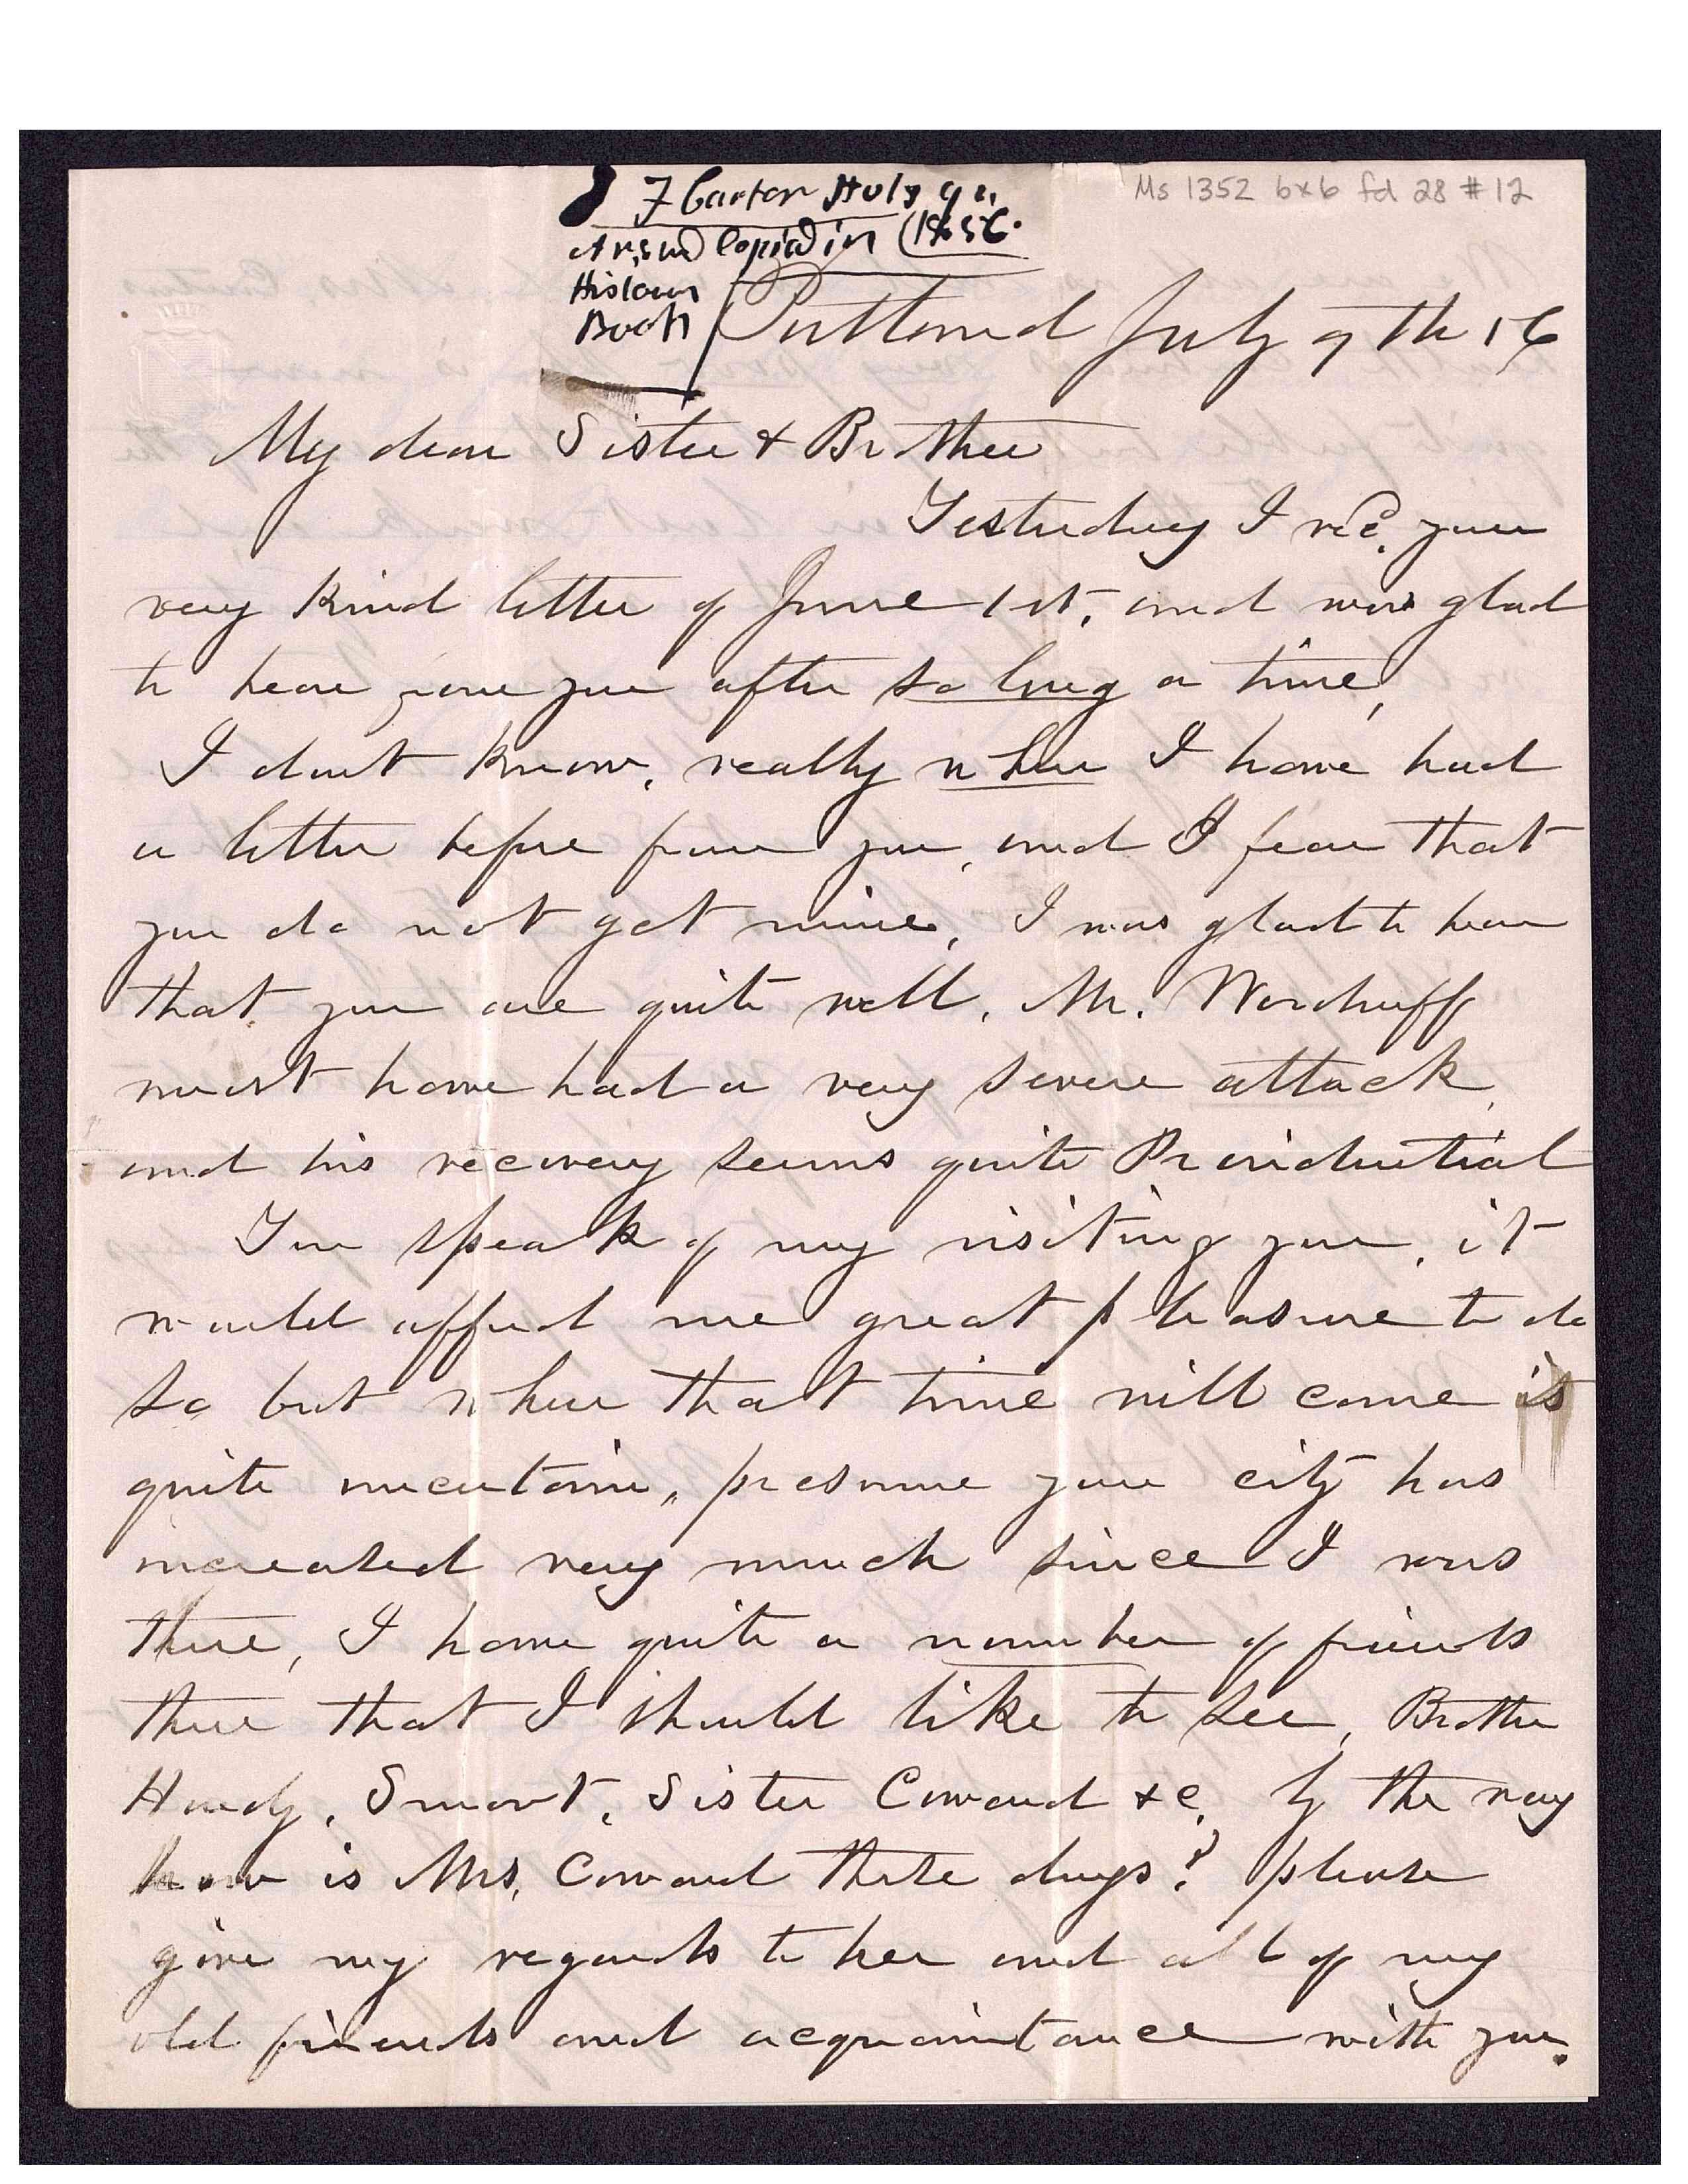 Ms 1352 bx6 fd 28 #12
I F Carter July 9th
Ansd Copied in (1856.
History
Book
Portland July 9th 56
My dear Sister & Brother
Yesterday I recd. your
very kind letter of June 1st, and was glad
to hear from you after so long a time,
I dont know, really when I have had
a letter before from you, and I fear that
you do not get mine, I was glad to hear
that you are quite well. Mr. Woodruff
must have had a very severe attack,
and his recovery seems quite Providential
You speak of my visiting you, it
would afford me great pleasure to do
so but when that time will come is
quite uncertain, presume your city has
increased very much since I was
there, I have quite a number of friends
there that I should like to see, Brother
Hardy, Smoot, Sister Coward &c, by the way
how is Mrs. Coward these days? please
give my regards to her and all of my
old friends and acquaintance with you.